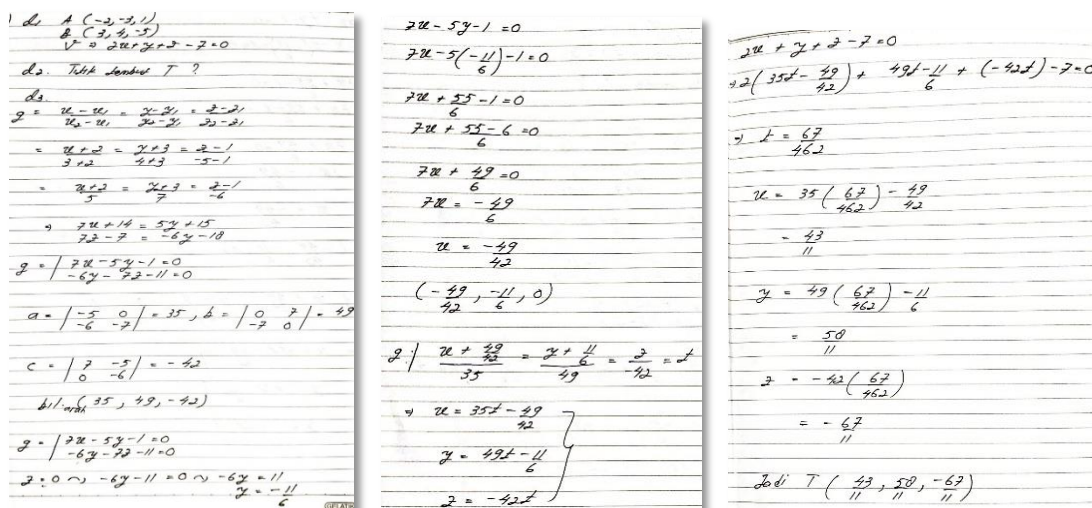 d1. A (-2,-3,1)
B (3,4,-5)
V ⇒ 2x+y+z-7=0
d2. Titik tembus T ?
d3.
g = x-x1/x2-x1 = y-y1/y2-y1 = z-z1/z2-z1
= x+2/3+2 = y+3/4+3 = z-1/-5-1
= x+2/5 = y+3/7 = z-1/-6
⇒ 7x+14 = 5y+15
7z-7 = -6y-18
g = | 7x-5y-1=0
-6y-7z-11=0
a = | -5 0 | = 35, b = | 0 7 | = 49
| -6 -7 | | -7 0 |
c = | 7 -5 | = -42
| 0 -6 |
bil. arah (35, 49, -42)
g = | 7x-5y-1=0
-6y-7z-11=0
z=0 ~ -6y-11=0 ~ -6y=11
y = -11/6
7x-5y-1=0
7x-5(-11/6)-1=0
7x+55/6-1=0
7x+55-6/6=0
7x+49/6=0
7x=-49/6
x = -49/42
(-49/42, -11/6, 0)
g:| x+49/42/35 = y+11/6/49 = z/-42 = t
⇒ x = 35t-49/42
y = 49t-11/6
z = -42t
2x+y+z-7=0
⇒2(35t-49/42)+ 49t-11/6 + (-42t)-7=0
⇒ t = 67/462
x = 35(67/462)-49/42
= 43/11
y = 49(67/462)-11/6
= 58/11
z = -42(67/462)
= -67/11
Jadi T (43/11, 58/11, -67/11)